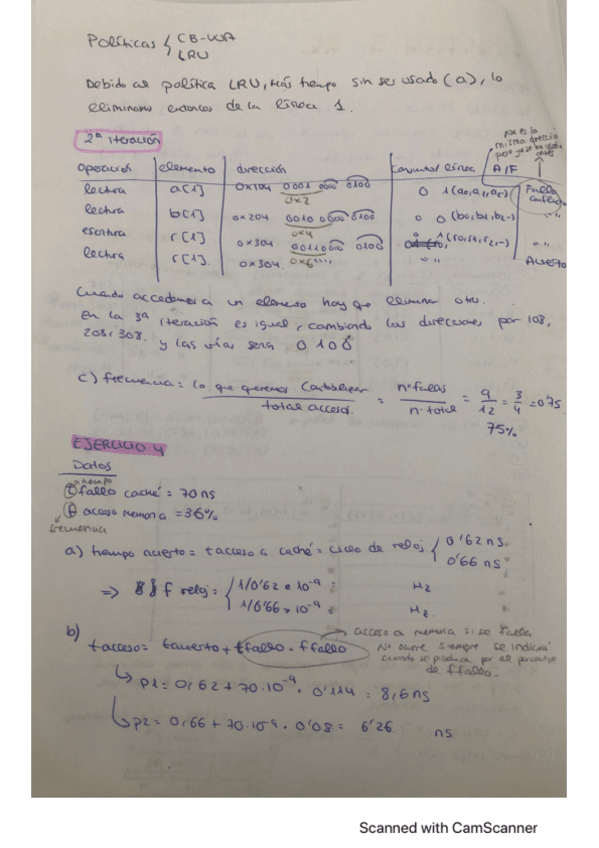 Políticas { CB-WA
LRU
Debido al política LRU, más tiempo sin ser usado (a), lo
eliminamos entonces de la línea 1.
2ª iteración
No es la
misma dirección
operación elemento dirección línea A/F
lectura a[1] 0x104 0001 0000 0100 0 1(a0,a1,a2-) Fallo
0x2
lectura b[1] 0x204 0010 0000 0100 0 0(b0,b1,b2-) "
0x4
escritura r[1] 0x304 0011 0000 0100 0 1(r0,r1,r2,-) "
0x6
lectura r[1] 0x304 " Acierto
Cuando accedemos a un elemento hay que eliminar otro.
En la 3ª iteración es igual, cambiando las direcciones por 108,
208, 308. y las vías sera 0100
c) frecuencia = lo que queremos contabilizar / total accesos = nº fallos / n. total = 9/12 = 3/4 = 0'75.
75%
EJERCICIO 4
Datos
tiempo
t fallo caché = 70 ns
f acceso memoria = 36%
frecuencia
a) tiempo acierto = t acceso a caché = ciclo de reloj { 0'62 ns.
0'66 ns
=> f reloj = { 1/0'62 · 10⁻⁹ = Hz
1/0'66 · 10⁻⁹ = Hz
b) acceso a memoria si se falla
t acceso = t acierto + t fallo · f fallo No ocurre siempre se indica
cuando se produce por el porcentaje
de f fallo.
P1 = 0,62 + 70·10⁻⁹ · 0'114 = 8,6 ns
P2 = 0,66 + 70·10⁻⁹ · 0'08 = 6'26 ns
Scanned with CamScanner